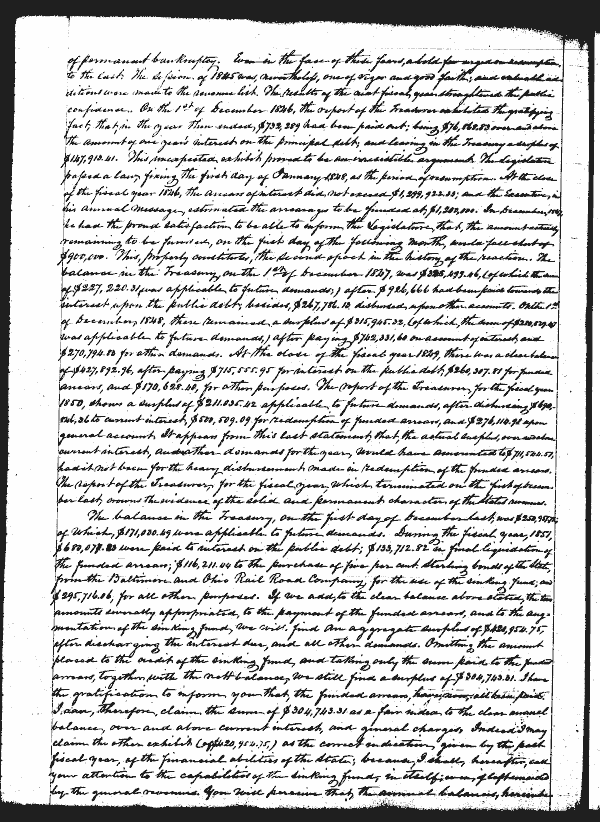 of permanent bankruptcy. Even in the face of these fears, a bold few urged on redemption
to the last. The session of 1845 was, nevertheless, one of vigor and good faith; and valuable ad-
ditions were made to the revenue list. The results of the next fiscal year strengthened the public
confidence. On the 1st of December 1846, the report of the Treasurer exhibited the gratifying
fact, that, in the year then ended, $732,289 had been paid out; being over and above
the amount of one year's interest on the principal debt, and leaving in the Treasury a surplus of
$147,910.41. This, unexpected, exhibit proved to be an irresistible argument. The legislature
passed a law, fixing the first day of January 1848, as the period of resumption. At the close
of the fiscal year 1846, the arrears of interest did not exceed and the Executive, in
his annual message, estimated the arrearages to be funded at, $1,200,000. In December, 1847,
he had the proud satisfaction to be able to inform the Legislature, that, the amount actually
remaining to be funded, on the first day of the following month, would fall short of
$900,000. This, properly constitutes, the second epoch in the history of the reaction. The
balance in the Treasury, on the 1st of December 1847, was (of which the sum
of $227,220.31 was applicable to future demands,) after $926,666 had been paid towards the
interest upon the public debt, besides, $267,786.12 disbursed, upon other accounts. On the 1st
of December, 1848, there remained, a surplus of $315,945.32, (of which, the sum of
was applicable to future demands,) after paying $742,331.60 on account of interest, and
$270,794.83 for other demands. At the close of the fiscal year 1849, there was a clear balance
of $427,892.96, after paying $715,555.95 for interest on the public debt, $260,307.81 for funded
arrears, and $170,628.40, for other purposes. The report of the Treasurer, for the fiscal year
1850, shows a surplus of $211,035.42 applicable to future demands, after disbursing
to current interest, $500,509.09 for redemption of funded arrears, and $276,114.98 upon
general account. It appears from this last statement, that, the actual surplus, over and above
current interest, and other demands for the year, would have amounted to
had it not been for the heavy disbursement made in redemption of the funded arrears.
The report of the Treasurer, for the fiscal year, which terminated on the first of Decem-
ber last, crowns the evidence of the solid and permanent character of the State's revenues.
The balance in the Treasury, on the first day of December last, was
of which, $171,020.49 were applicable to future demands. During the fiscal year, 1851,
were paid to interest on the public debt; $133,712.82 in final legislation of
the funded arrears; $116,211.44 to the purchase of five per cent. Sterling bonds of the State,
from the Baltimore and Ohio Rail Road Company, for the use of the sinking fund; and
$295,716.06, for all other purposes. If we add, to the clear balance above stated, the two
amounts severally appropriated, to the payment of the funded arrears, and to the aug-
mentation of the sinking fund, we will find an aggregate surplus of $420,954.75,
after discharging the interest due, and all other demands. Omitting the amount
placed to the credit of the sinking fund, and taking only the sum paid to the funded
arrears, together, with the nett balance, we still find a surplus of $304,743.31. I have
the gratification to inform you that, the funded arrears, have, now, all been paid.
I, can, therefore, claim the sum of $304,743.31 as a fair index to the clear annual
balance, over and above current interest, and general charges. Indeed I may
claim the other exhibit (of $420,954.75,) as the correct indication, given by the past
fiscal year, of the financial abilities of the State; because, I shall, hereafter, call
your attention to the capabilities of the sinking fund, in itself; even, if left unaided
by the general revenues. You will perceive that, the annual balances,